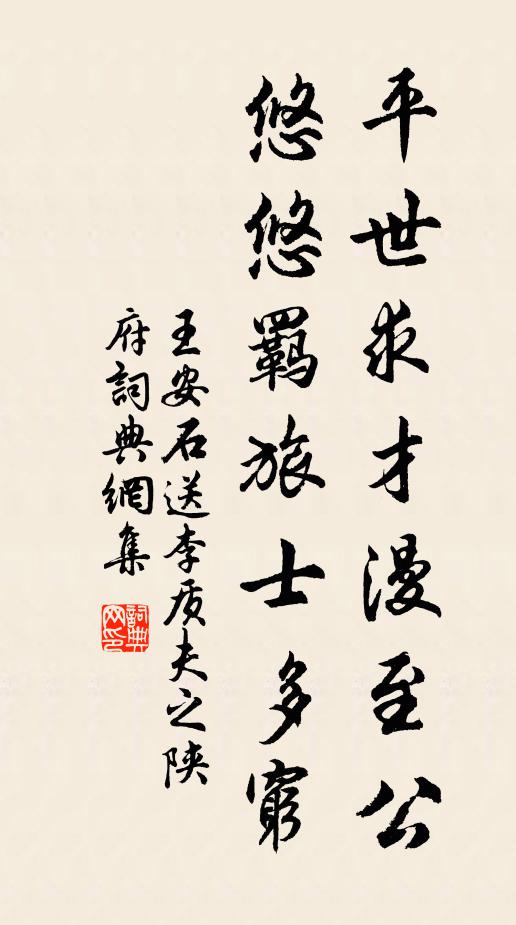 平世求才漫至公
悠悠羈旅士多窮
王安石送李质夫之陕
府詞典網集
詞典網印